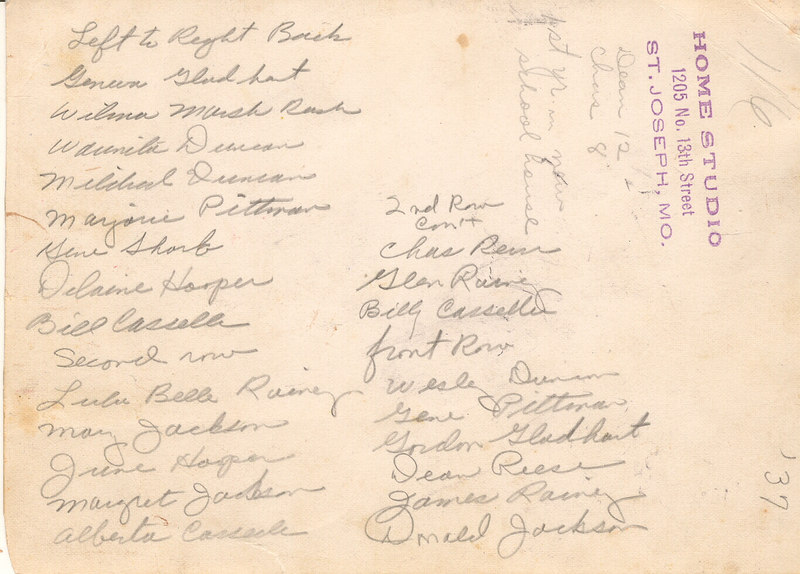 Left to Right Back
Geneva Gladhart
Wilma Marsh Rash
Waunita Duncan
Mildred Duncan
Marjorie Pittman
Gene Shorb
Delaine Hooper
Bill Casselle
Second row
Lulu Belle Rainey
Mary Jackson
June Hooper
Margret Jackson
Alberta Casselle
2nd Row
Con't
Chas
Glen Rainey
Billy Casselle
front Row
Wesley Duncan
Gene Pittman
Gordon Gladhart
Dean Reese
James Rainey
Donald Jackson
1st yr. in new
school house
Dean 12
Chas 8
HOME STUDIO
1205 No. 13th Street
ST. JOSEPH, MO.
'37